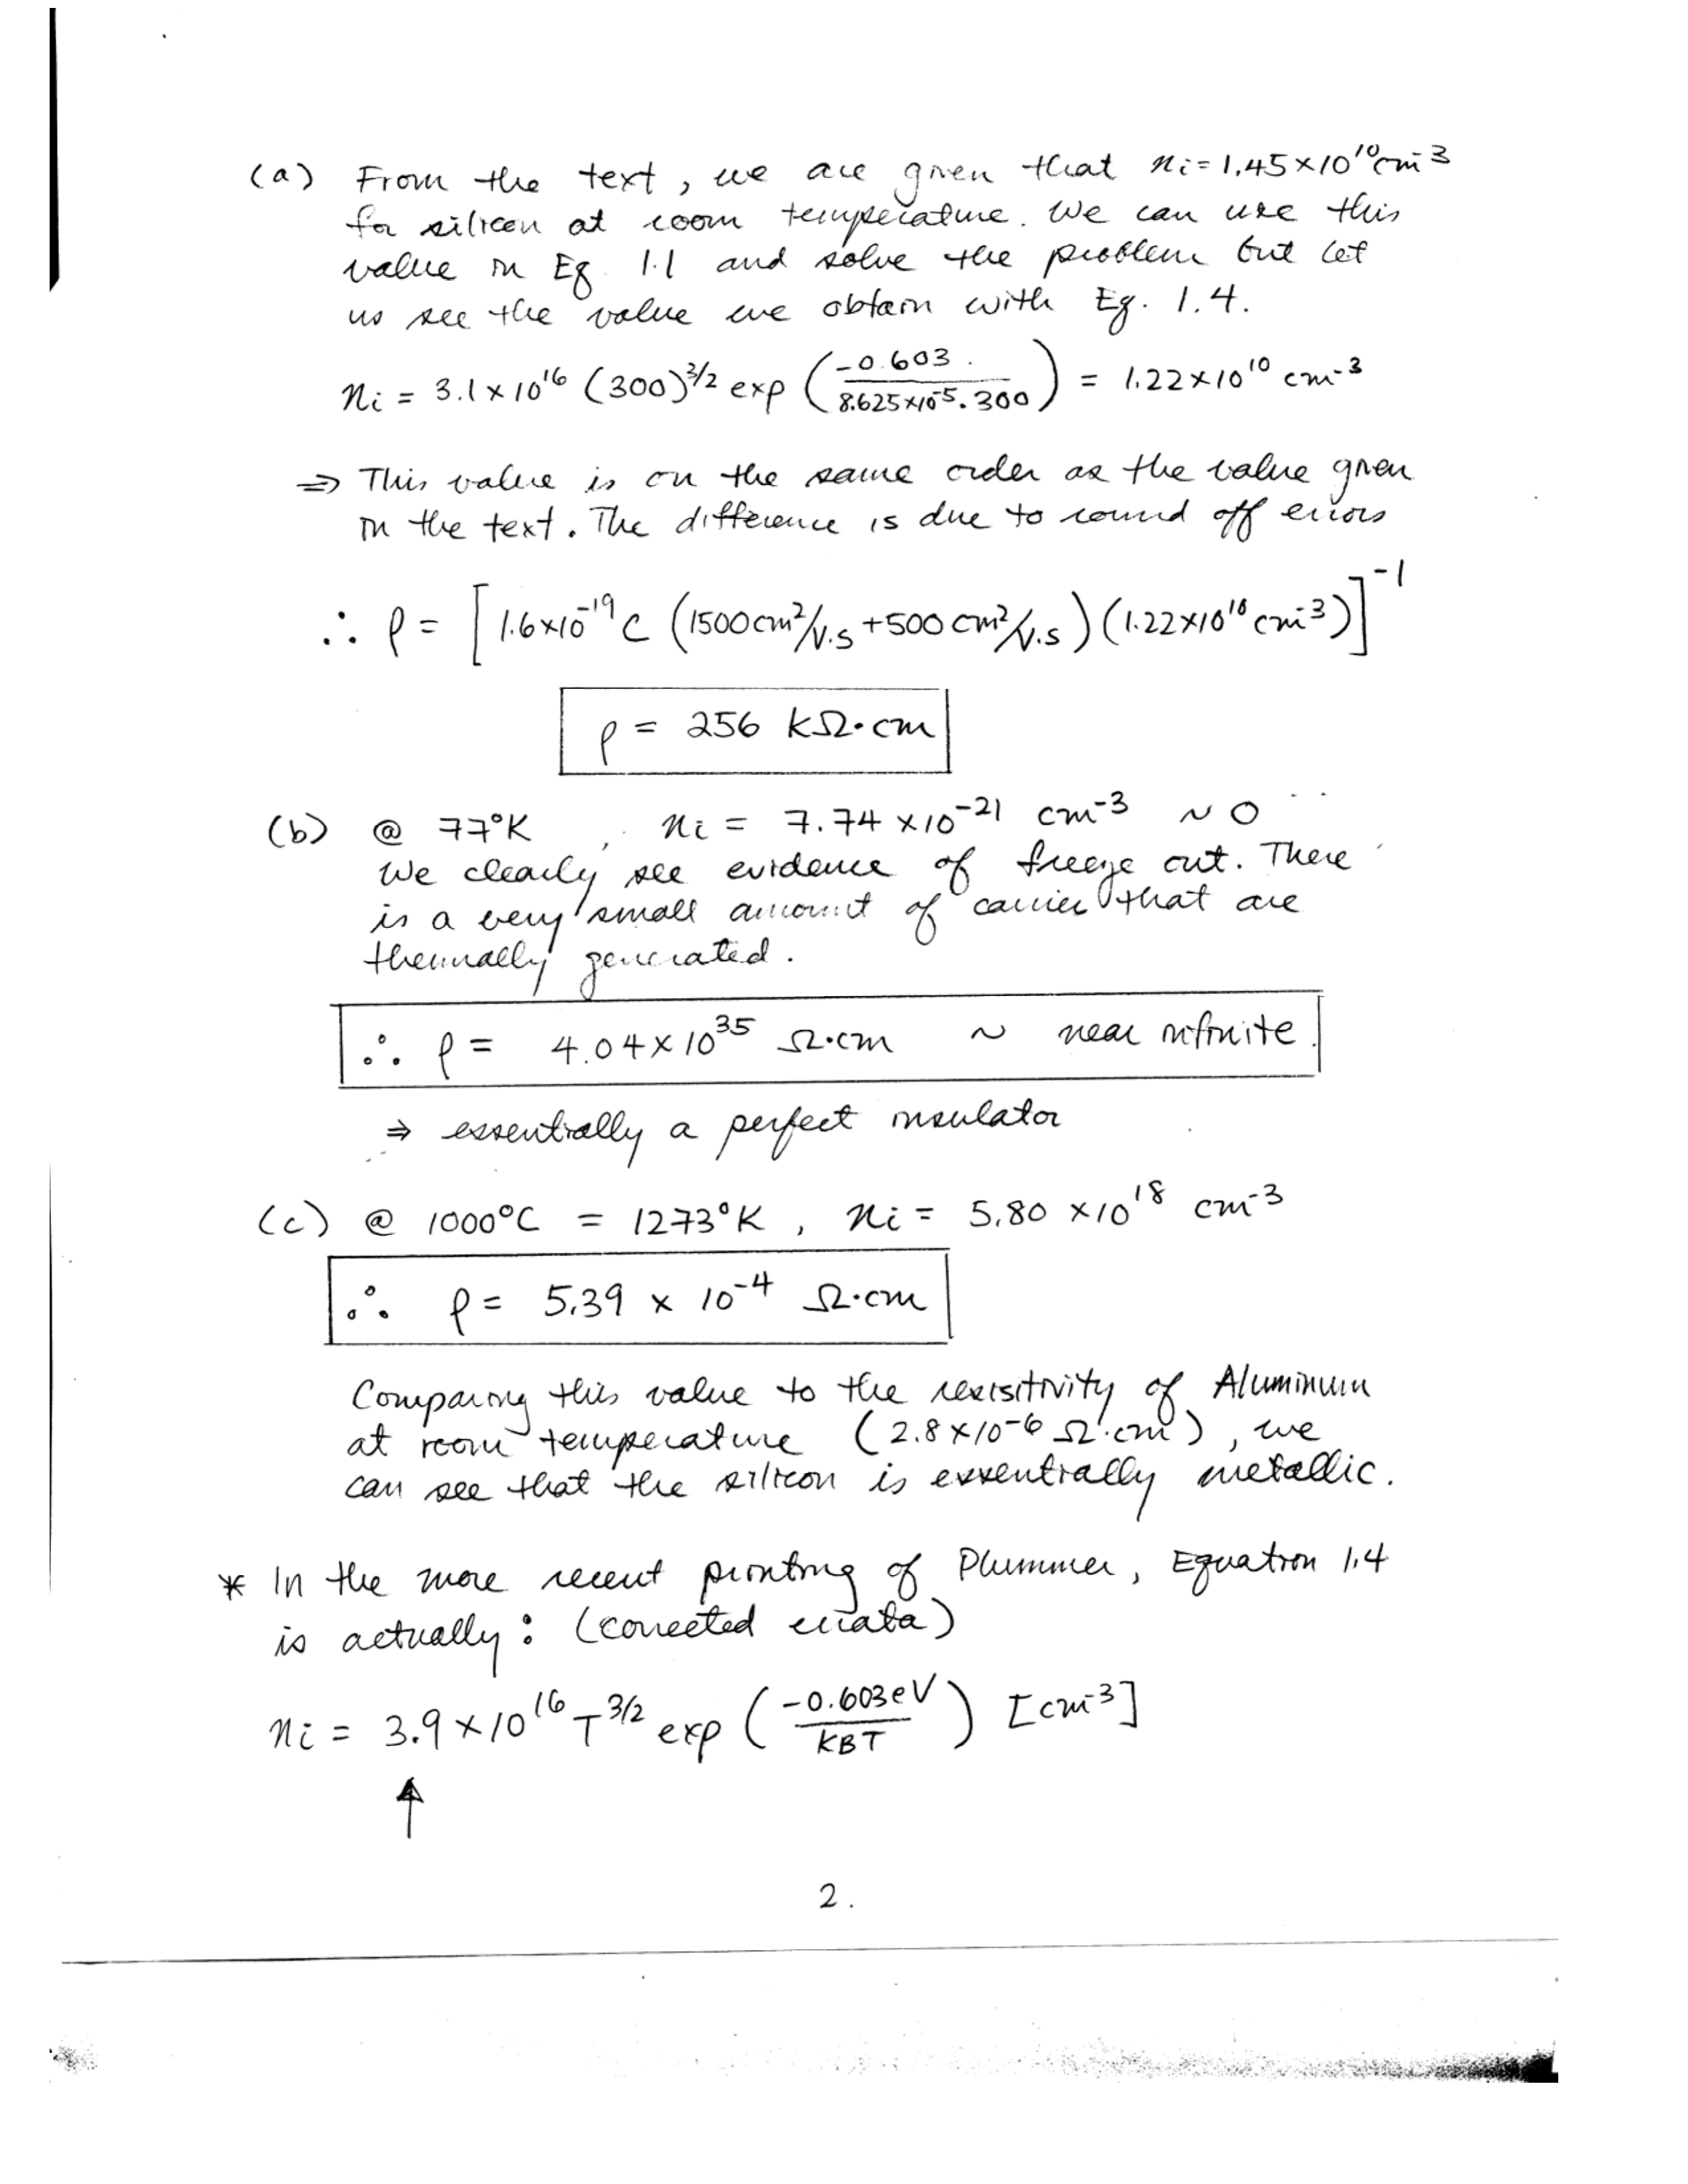 (a) From the text, we are given that ni = 1.45 × 10¹⁰ cm⁻³
for silicon at room temperature. We can use this
value in Eq. 1.1 and solve the problem but let
us see the value we obtain with Eq. 1.4.
ni = 3.1 × 10¹⁶ (300)^3/2 exp (-0.603 / 8.625×10⁻⁵·300) = 1.22 × 10¹⁰ cm⁻³
⇒ This value is on the same order as the value given
in the text. The difference is due to round off errors
∴ ρ = [1.6×10⁻¹⁹ C (1500 cm²/V·s + 500 cm²/V·s) (1.22×10¹⁰ cm⁻³)]⁻¹
ρ = 256 kΩ·cm
(b) @ 77°K, ni = 7.74 × 10⁻²¹ cm⁻³ ~ 0
We clearly see evidence of freeze out. There
is a very small amount of carrier that are
thermally generated.
∴ ρ = 4.04 × 10³⁵ Ω·cm ~ near infinite.
⇒ essentially a perfect insulator
(c) @ 1000°C = 1273°K, ni = 5.80 × 10¹⁸ cm⁻³
∴ ρ = 5.39 × 10⁻⁴ Ω·cm
Comparing this value to the resisitivity of Aluminum
at room temperature (2.8 × 10⁻⁶ Ω·cm), we
can see that the silicon is essentially metallic.
* In the more recent printing of Plummer, Equation 1.4
is actually: (corrected errata)
ni = 3.9 × 10¹⁶ T^3/2 exp (-0.603eV / KBT) [cm⁻³]
↑
2.